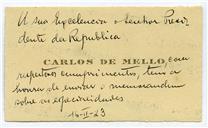 A sua Excelencia o Senhor Presi
dente da Republica
CARLOS DE MELLO, com
respeitosos cumprimentos, tem a
honra de enviar o memorandum
sobre as especialidades
16-II-23